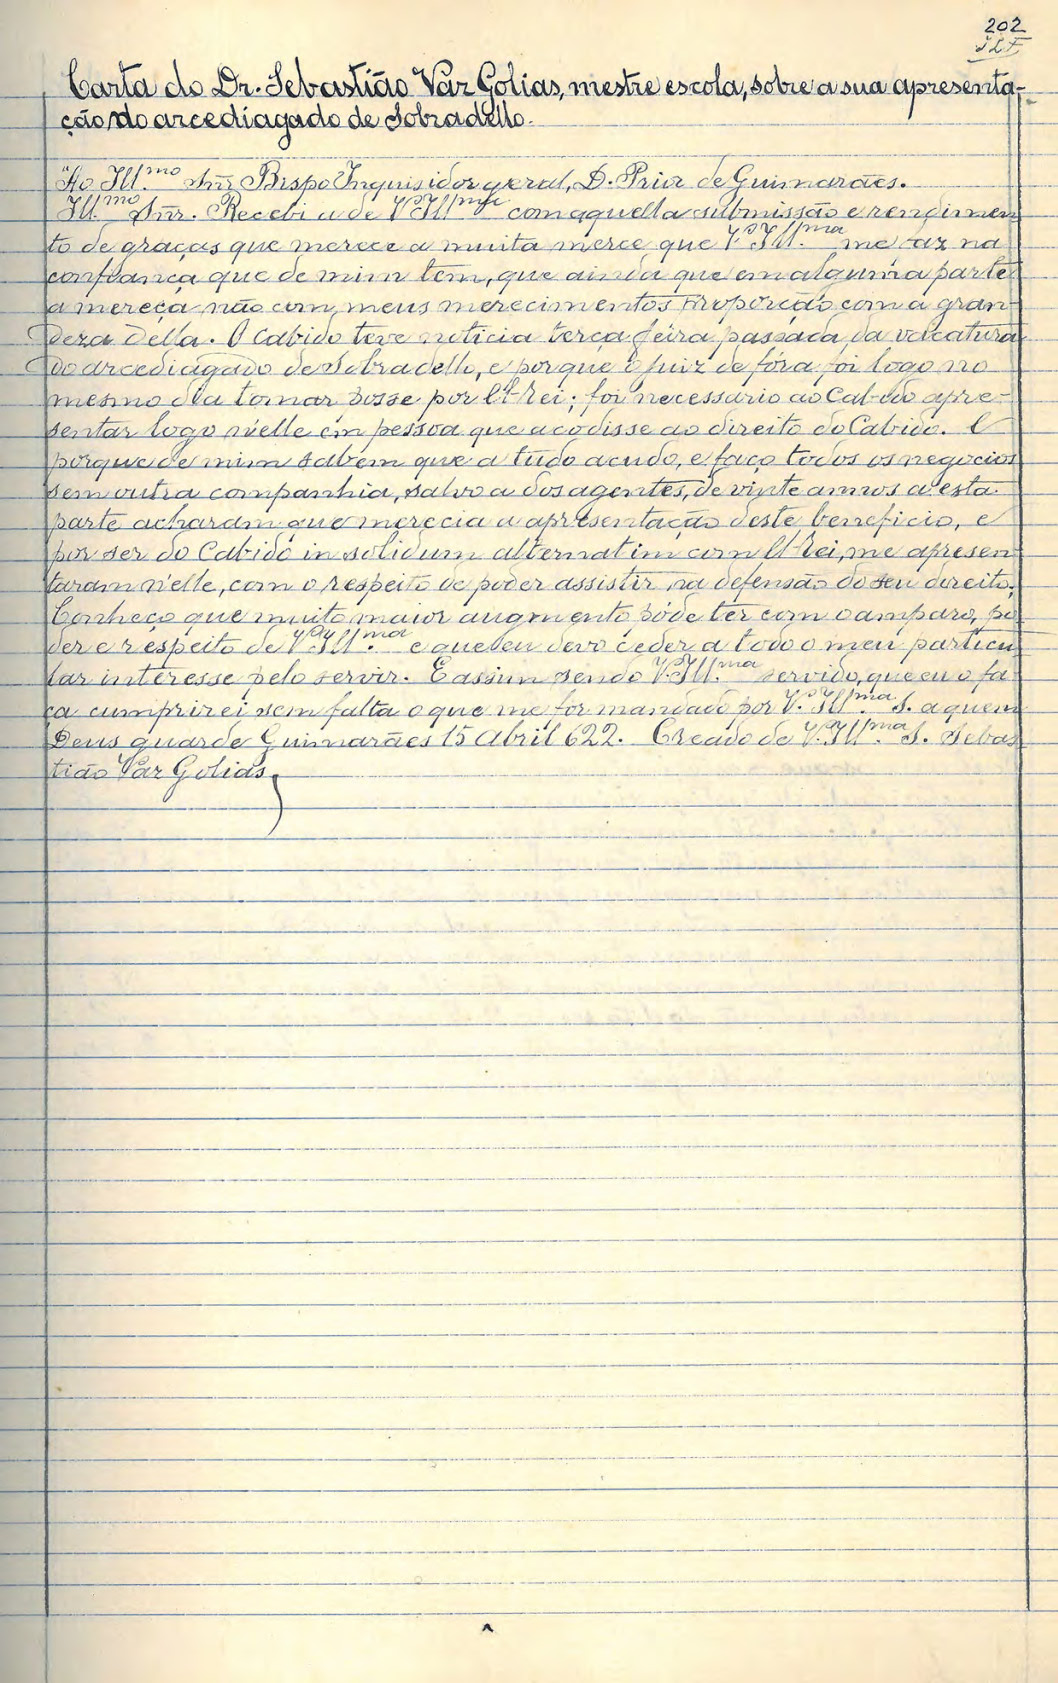 202
Carta do Dr. Sebastião Vaz Golias, mestre escola, sobre a sua apresenta-
ção no arcediagado de Sobradello.
"Ao Ill.mo Snr Bispo Inquisidor geral, D. Prior de Guimarães.
Ill.mo Snr. Recebi a de V.ª Ill.ma com aquella submissão e rendimen
to de graças que merece a muita merce que V.ª Ill.ma me faz na
confiança que de mim tem, que ainda que em alguma parte
a mereça não com meus merecimentos proporção com a gran-
deza della. O Cabido teve noticia terça feira passada da vacatura
do arcediagado de Sobradello, e porque o juiz de fóra foi logo no
mesmo dia tomar posse por El-rei; foi necessario ao Cabido apre-
sentar logo n'elle em pessoa que acodisse ao direito do Cabido. E
porque de mim sabem que a tudo acudo, e faço todos os negocios
sem outra companhia, salvo a dos agentes, de vinte annos a esta
parte acharam que merecia a apresentação deste beneficio, e
por ser do Cabido in solidum alternatim com El-rei, me apresen
taram n'elle, com o respeito de poder assistir na defensão do seu direito.
Conheço que muito maior augmento póde ter com o amparo, po
der e respeito de V.ª Ill.ma e que eu devo ceder a todo o meu particu
lar interesse pelo servir. E assim sendo V.ª Ill.ma servido, que eu o fa-
ça cumprirei sem falta o que me for mandado por V.ª Ill.ma S. a quem
Deus guarde Guimarães 15 Abril 622. Creado de V.ª Ill.ma S. Sebas
tião Vaz Golias